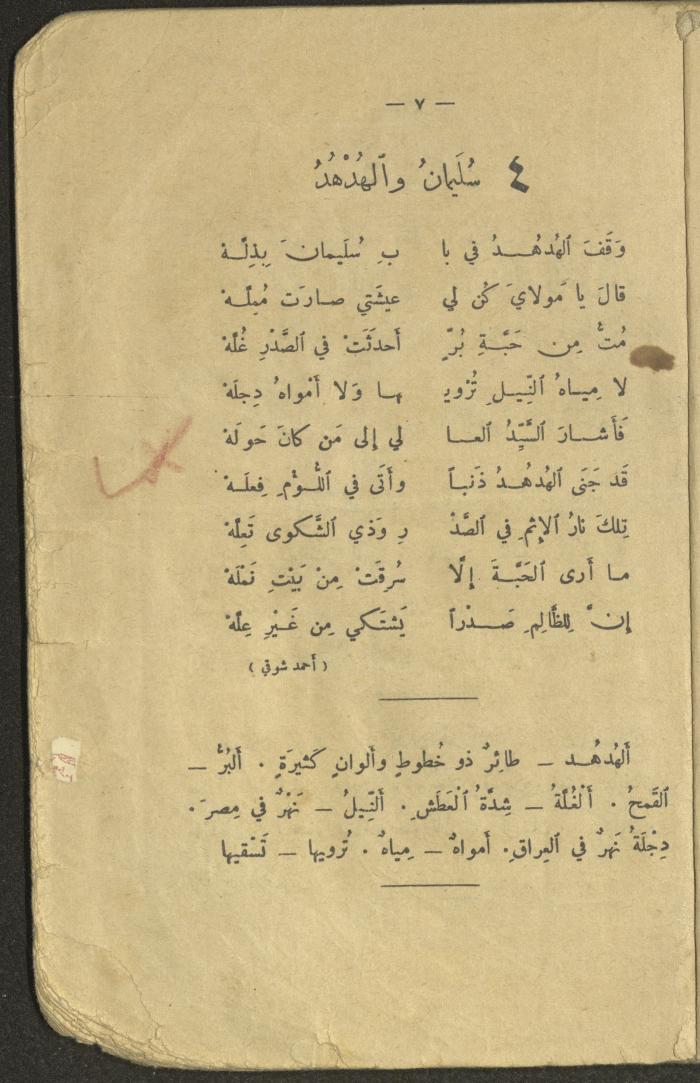 — ٧ —
٤ سُلَيمانُ وٱلهُدْهُدُ
وَقَفَ ٱلهُدهُـــدُ في با بِ سُلَيمانَ بِذِلَّـهْ
قالَ يا مَولايَ كُن لي عيشَتي صـارَت مُمِلَّـهْ
مُتُّ مِن حَبَّـةِ بُرٍّ أَحدَثَتْ في ٱلصَّدْرِ غُلَّهْ
لا مِيـاهُ ٱلنِّيـلِ تُرْويـ ـهـا وَلا أَمْواهُ دِجلَهْ
فَأَشـارَ ٱلسَّيِّدُ ٱلعـا لي إلى مَن كانَ حَولَهْ
قَد جَنَى ٱلهُدهُـدُ ذَنبـاً وأَتَى في ٱللُّـؤْمِ فِعلَـهْ
تِلكَ نارُ ٱلإِثمِ في ٱلصَّدْ رِ وَذي ٱلشَّكوى تَعِلَّهْ
مـا أَرى ٱلحَبَّـةَ إلَّا سُرِقَتْ مِنْ بَيْتِ نَمْلَهْ
إنَّ لِلظَّالِمِ صَـــدْراً يَشتَـكي مِن غَـيْرِ عِلَّهْ
( أحمد شوقي )
أَلهُدهُـــد — طائِرٌ ذو خُطوطٍ وأَلوانٍ كَثيرَةٍ . أَلبُرُّ —
ٱلقَمحُ . أَلْغُلَّةُ — شِدَّةُ ٱلْعَطَشِ . أَلنِّيلُ — نَهْرٌ في مِصرَ .
دِجْلَةُ نَهرٌ في ٱلعِراقِ . أَمواهٌ — مِياهٌ . تُرويها — تَسْقيها